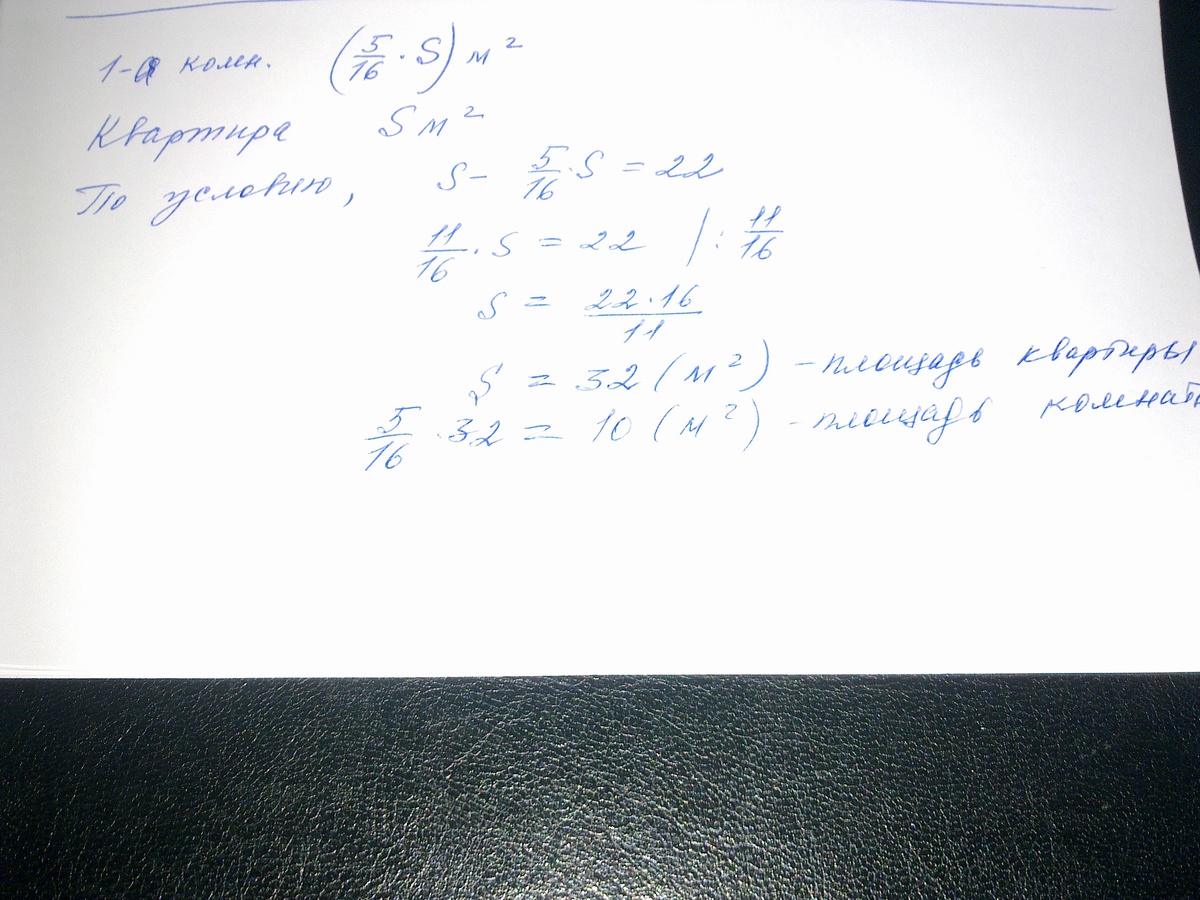 1-я комн. (5/16 · S) м²
Квартира S м²
По условию, S - 5/16 · S = 22
11/16 · S = 22 | : 11/16
S = 22·16/11
S = 32 (м²) - площадь квартиры
5/16 · 32 = 10 (м²) - площадь комнат